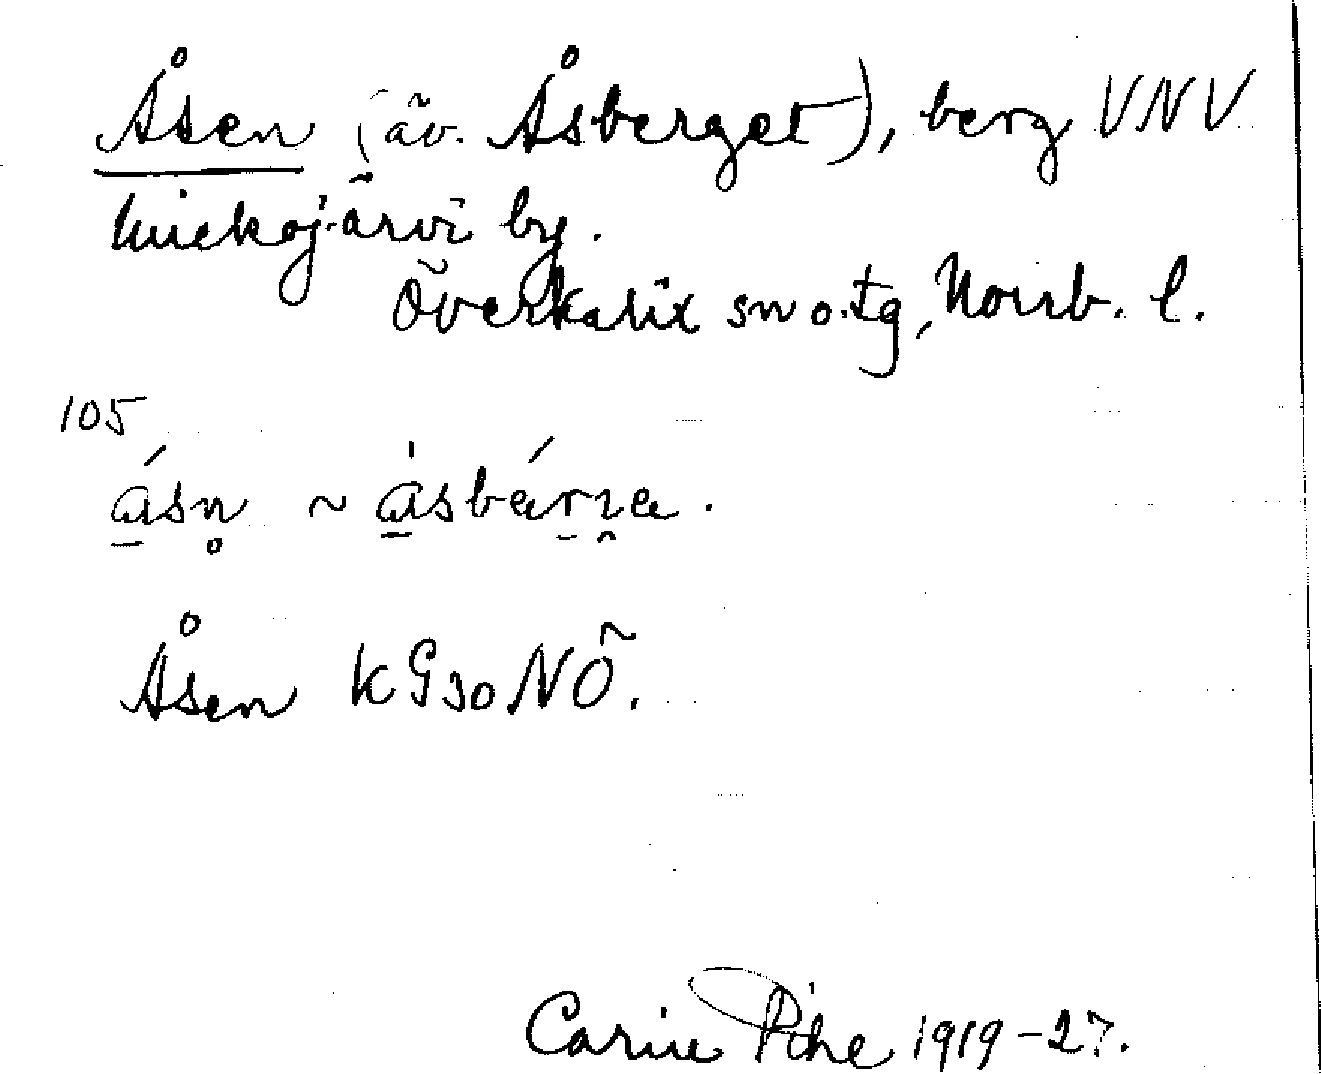 Åsen (äv. Åsberget), berg VNV
Miekojärvi by.
Överkalix sn o. tg, Norrb. l.
105
á̱sn̥ ~ a̱̍sbárɲa.
Åsen kG30NÖ.
Carin Pihl 1919-27.